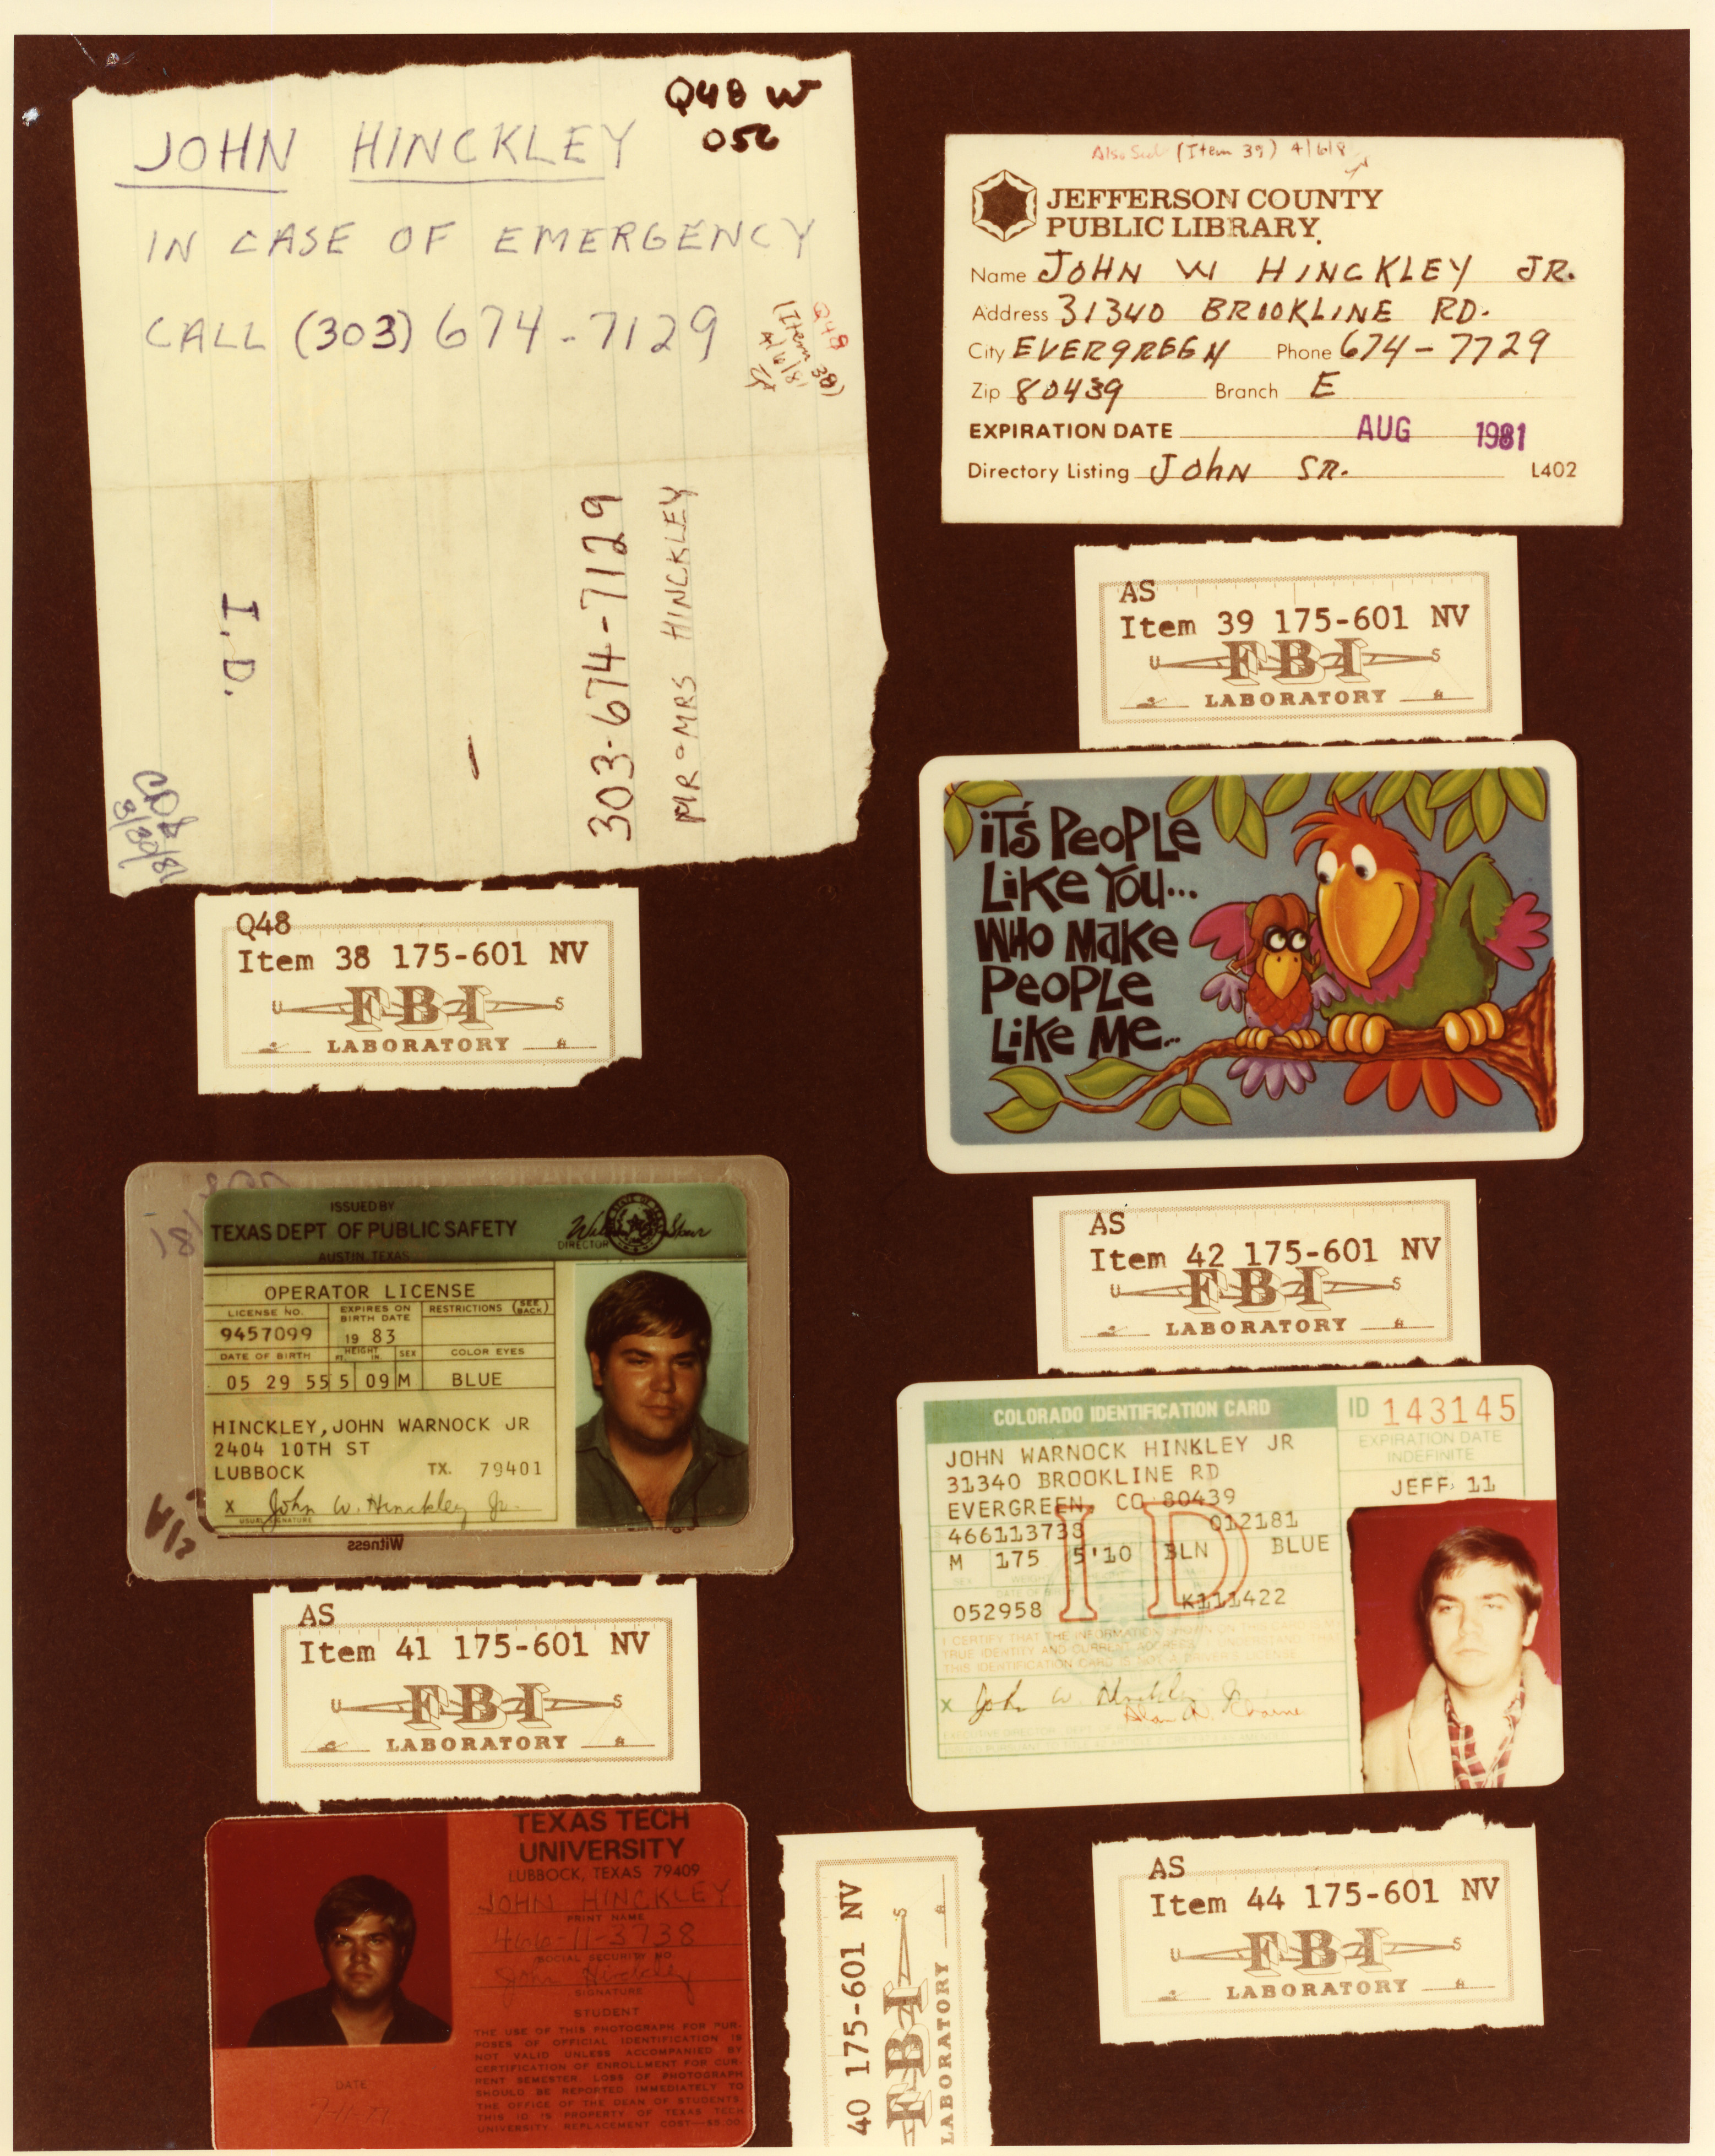 Q48 W
056
JOHN HINCKLEY
IN CASE OF EMERGENCY
CALL (303) 674-7129
Q48
(Item 38)
4/6/81
303-674-7129
MR & MRS HINCKLEY
I.D.
3/30/81
Q48
Item 38 175-601 NV
U S
FBI
LABORATORY
(Item 39) 4/6/8
JEFFERSON COUNTY
PUBLIC LIBRARY
Name JOHN W HINCKLEY JR.
Address 31340 BROOKLINE RD.
City EVERGREEN Phone 674-7729
Zip 80439 Branch E
EXPIRATION DATE AUG 1981
Directory Listing JOHN SR. L402
AS
Item 39 175-601 NV
U S
FBI
LABORATORY
IT'S PEOPLE
LIKE YOU...
WHO MAKE
PEOPLE
LIKE ME...
AS
Item 42 175-601 NV
U S
FBI
LABORATORY
ISSUED BY
TEXAS DEPT OF PUBLIC SAFETY
AUSTIN, TEXAS
DIRECTOR
OPERATOR LICENSE
LICENSE NO. EXPIRES ON BIRTH DATE RESTRICTIONS (SEE BACK)
9457099 19 83
DATE OF BIRTH HEIGHT FT. IN. SEX COLOR EYES
05 29 55 5 09 M BLUE
HINCKLEY, JOHN WARNOCK JR
2404 10TH ST
LUBBOCK TX. 79401
X John W. Hinckley Jr.
USUAL SIGNATURE
Witness
AS
Item 41 175-601 NV
U S
FBI
LABORATORY
COLORADO IDENTIFICATION CARD
ID 143145
EXPIRATION DATE
INDEFINITE
JEFF 11
JOHN WARNOCK HINKLEY JR
31340 BROOKLINE RD
EVERGREEN, CO 80439
466113738 012181
M 175 5'10 BLN BLUE
SEX WEIGHT
DATE OF BIRTH
052958 K111422
ID
I CERTIFY THAT THE INFORMATION SHOWN ON THIS CARD IS MY
TRUE IDENTITY AND CURRENT ADDRESS. I UNDERSTAND THAT
THIS IDENTIFICATION CARD IS NOT A DRIVER'S LICENSE
X John W. Hinckley Jr.
EXECUTIVE DIRECTOR, DEPT OF
AS
Item 44 175-601 NV
U S
FBI
LABORATORY
TEXAS TECH
UNIVERSITY
LUBBOCK, TEXAS 79409
JOHN HINCKLEY
PRINT NAME
466-11-3738
SOCIAL SECURITY NO.
John Hinckley
SIGNATURE
STUDENT
THE USE OF THIS PHOTOGRAPH FOR PUR-
POSES OF OFFICIAL IDENTIFICATION IS
NOT VALID UNLESS ACCOMPANIED BY
CERTIFICATION OF ENROLLMENT FOR CUR-
RENT SEMESTER. LOSS OF PHOTOGRAPH
SHOULD BE REPORTED IMMEDIATELY TO
THE OFFICE OF THE DEAN OF STUDENTS.
THIS ID IS PROPERTY OF TEXAS TECH
UNIVERSITY. REPLACEMENT COST—$5.00
DATE
40 175-601 NV
S
FBI
LABORATORY